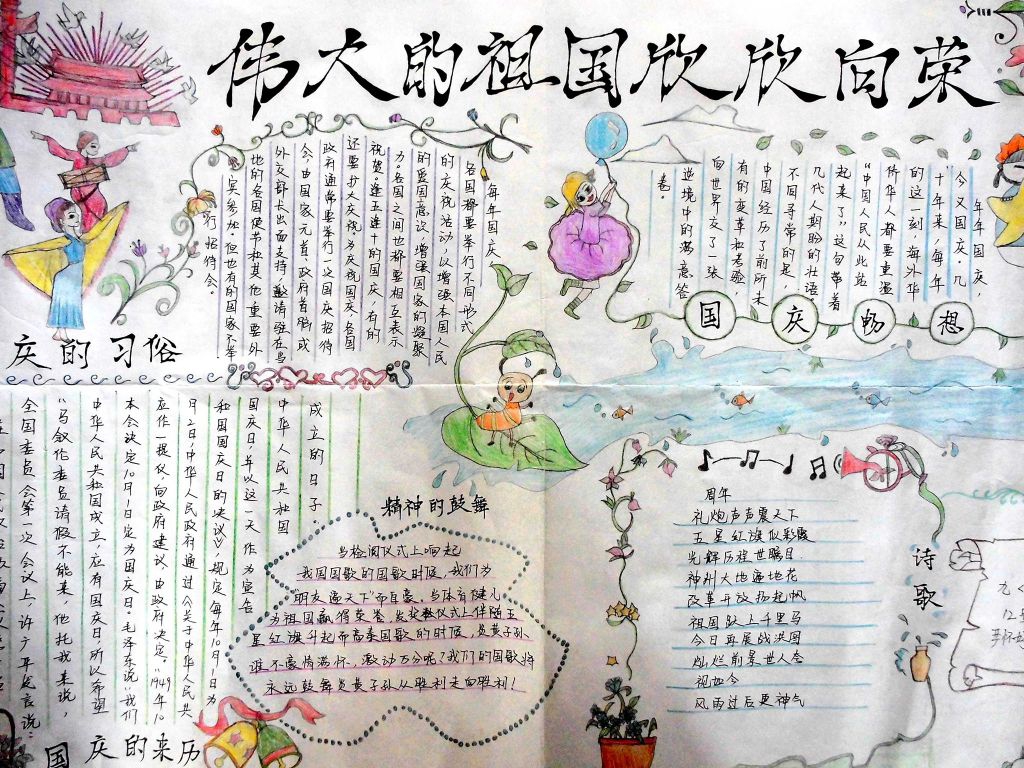 伟大的祖国欣欣向荣
每年国庆
各国都要举行不同形式
的庆祝活动以增强本国人民
的爱国意识,增强国家的凝聚
力。各国之间也都要相互表示
祝贺。逢五逢十的国庆,有的
还要扩大庆祝为庆祝国庆,各国
政府通常要举行一次国庆招待
会,由国家元首、政府首脑或
外交部长出面支持,邀请驻在当
地的各国使节和其他重要外
宾参加。但也有的国家不举
行招待会。
庆的习俗
年年国庆,
今又国庆。几
十年来,每年
的这一刻,海外华
侨华人都要重温
“中国人民从此站
起来了”这句带着
几代人期盼的壮语
不同寻常的是,
中国经历了前所未
有的变革和考验,
向世界交了一张
逆境中的满意答
卷。
国庆畅想
成立的日子。
中华人民共和国
国庆日,并以这一天作为宣告
和国国庆日的决议》,规定每年10月1日为
月2日,中华人民政府通过《关于中华人民共
应作一提仪,向政府建议,由政府决定。”1949年10
本会决定10月1日定为国庆日。毛泽东说:“我们
中华人民共和国成立,应有国庆日,所以希望
“马叙伦委员请假不能来,他托我来说,
全国委员会第一次会议上,许广平发言说:
国庆的来历
精神的鼓舞
当检阅仪式上响起
我国国歌的国歌时候,我们为
“朋友遍天下”而自豪。当体育健儿
为祖国赢得荣誉,发奖仪式上伴随五
星红旗升起而高奏国歌的时候,炎黄子孙
谁不豪情满怀,激动万分呢?我们的国歌将
永远鼓舞炎黄子孙从胜利走向胜利!
周年
礼炮声声震天下
五星红旗似彩霞
光辉历程世瞩目
神州大地遍地花
改革开放扬起帆
祖国跃上千里马
今日再展战洪图
灿烂前景世人夸
视如今
风雨过后更神气
诗歌